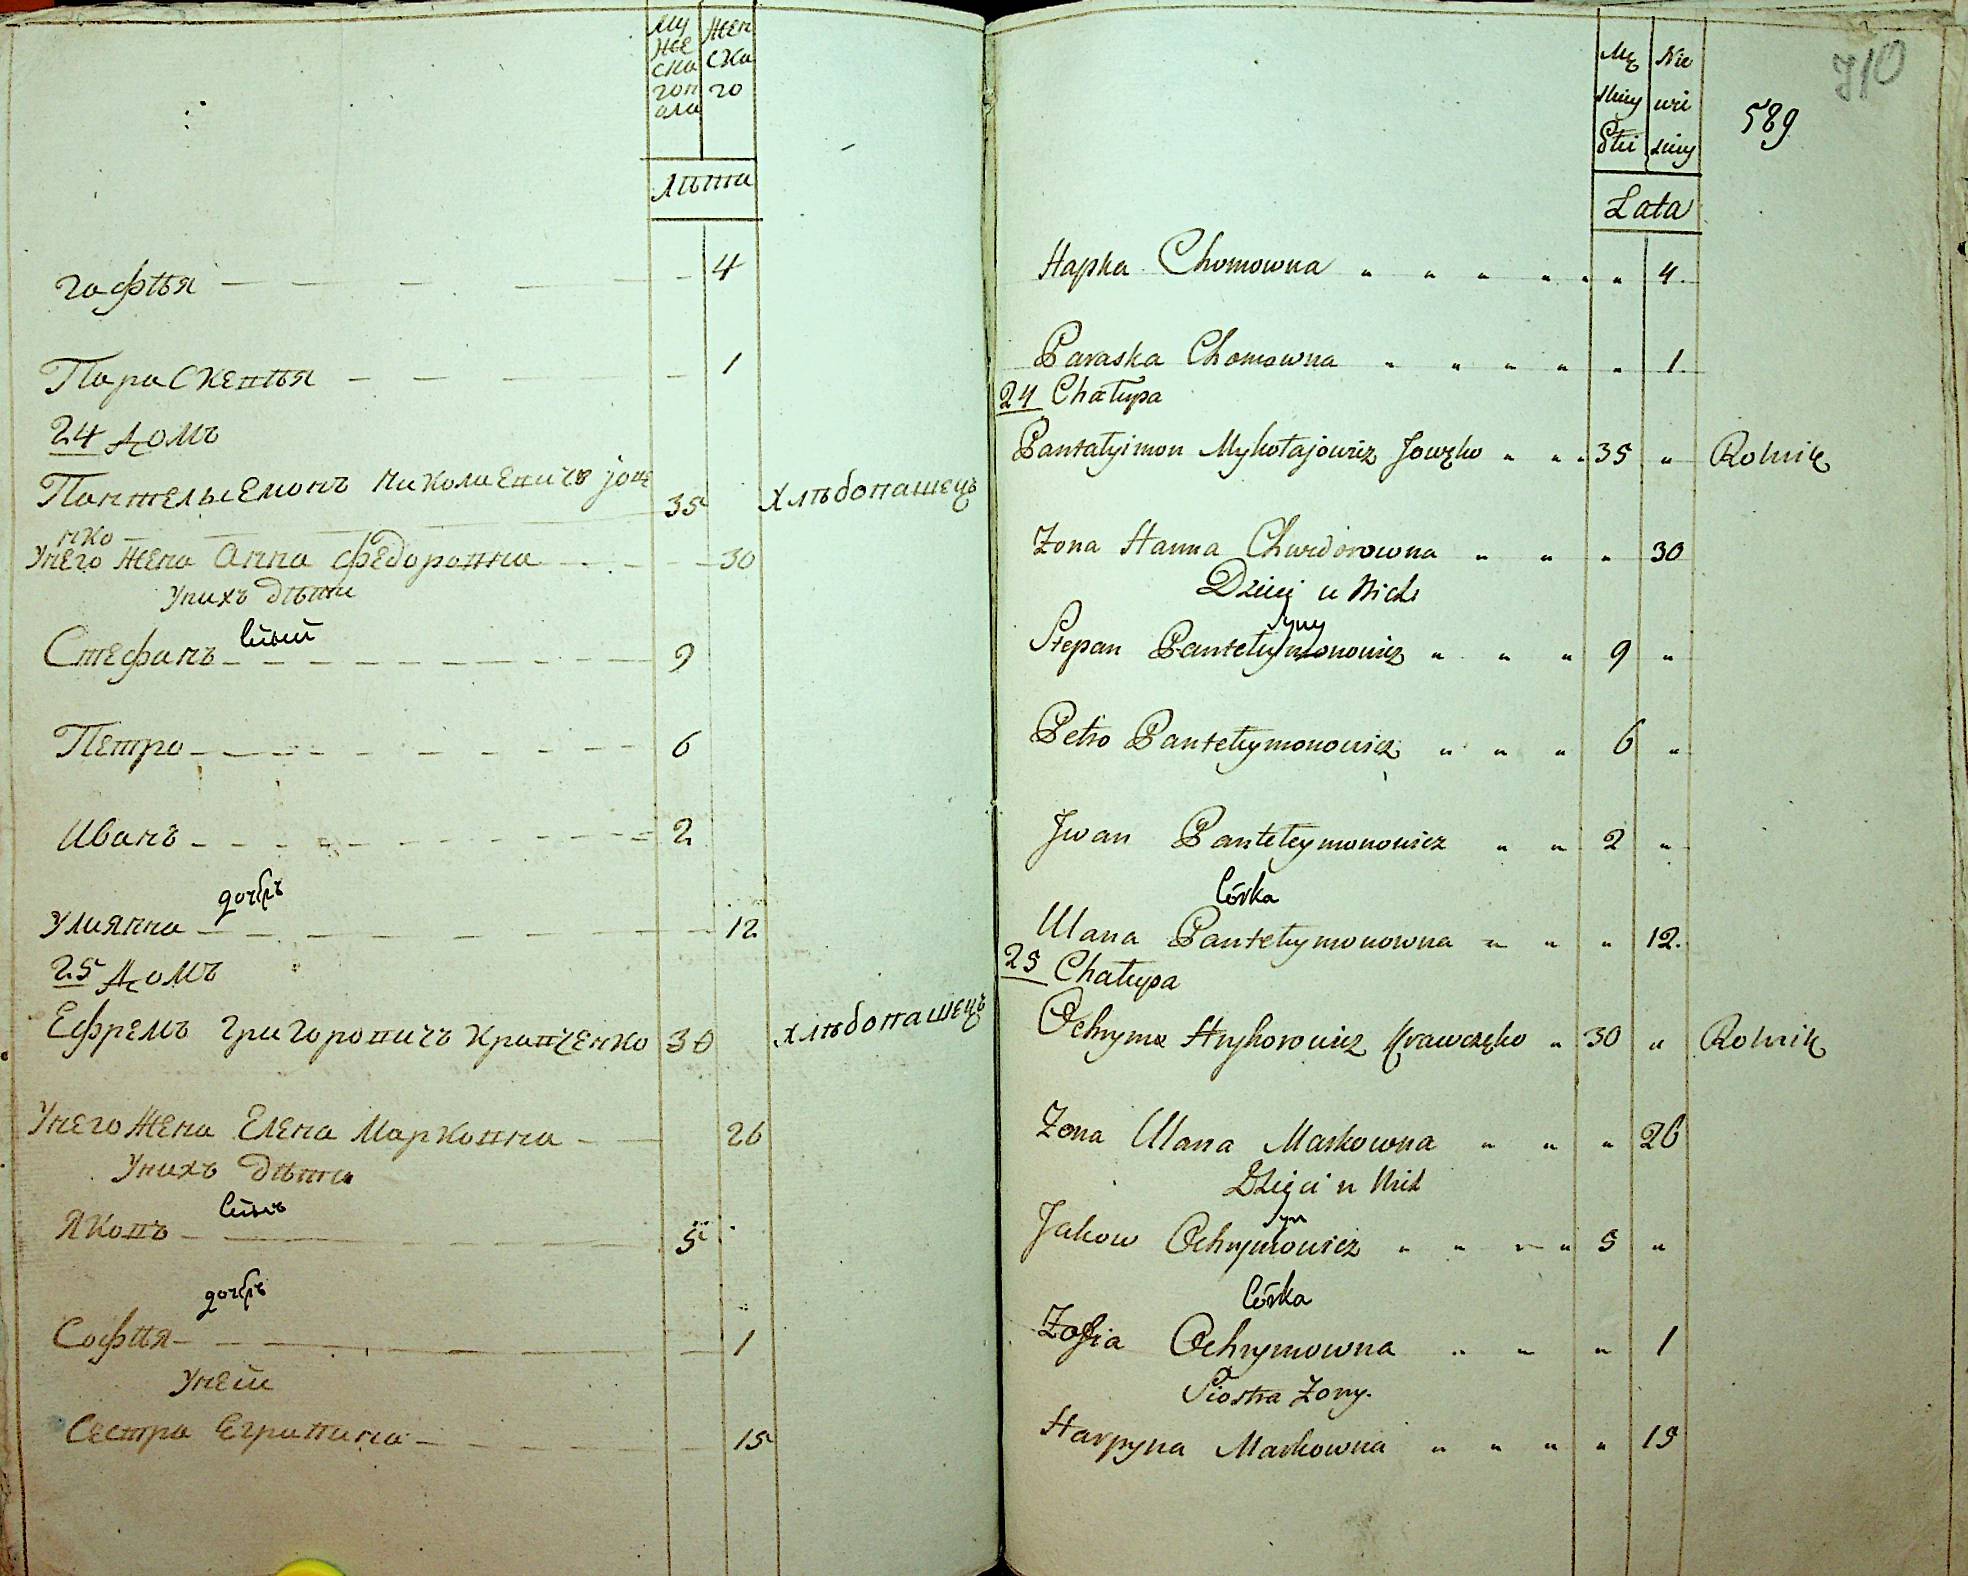 Му же ска гоп ола
Жен ска го
Лѣта
гафѣя 4
Параскевѣя 1
24 домъ
Пантелеемонъ Николаевичъ Јоце 35 хлѣбопашецъ
нко
Унего жена Анна Федоровна 30
Унихъ дѣти
сыны
Стефанъ 9
Петро 6
Иванъ 2
дочерь
Улиянна 12
25 домъ
Ефремъ Григоровичъ Кравченко 30 хлѣбопашецъ
Унего жена Елена Марковна 26
Унихъ дѣти
сынъ
Яковъ 5
дочерь
Софія 1
Унеи
Сестра Еграпина 15
710
589
Mę skiey Płci
Nie wie sciey
Lata
Hapka Chomowna " " " " " " 4.
Paraska Chomowna " " " " " 1.
24 Chałupa
Pantałyimon Mykołajowicz Jowęko " " " 35 " Rolnik
Zona Hanna Chwedorowna " " " 30
Dzieci u Nich
Syny
Stepan Pantełymonowicz " " " 9 "
Petro Pantełymonowicz " " " 6 "
Jwan Pantełeymonowicz " " 2 "
Córka
Ulana Pantełymonowna " " " 12.
25 Chałupa
Ochryma Hryhorowicz Krawczęko " 30 " Rolnik
Zona Ulana Markowna " " " 26
Dzieci u Nich
Syn
Jakow Ochrymowicz " " " " 5 "
Córka
Zofia Ochrymowna " " " 1
Siostra Zony.
Harpyna Markowna " " " " 15